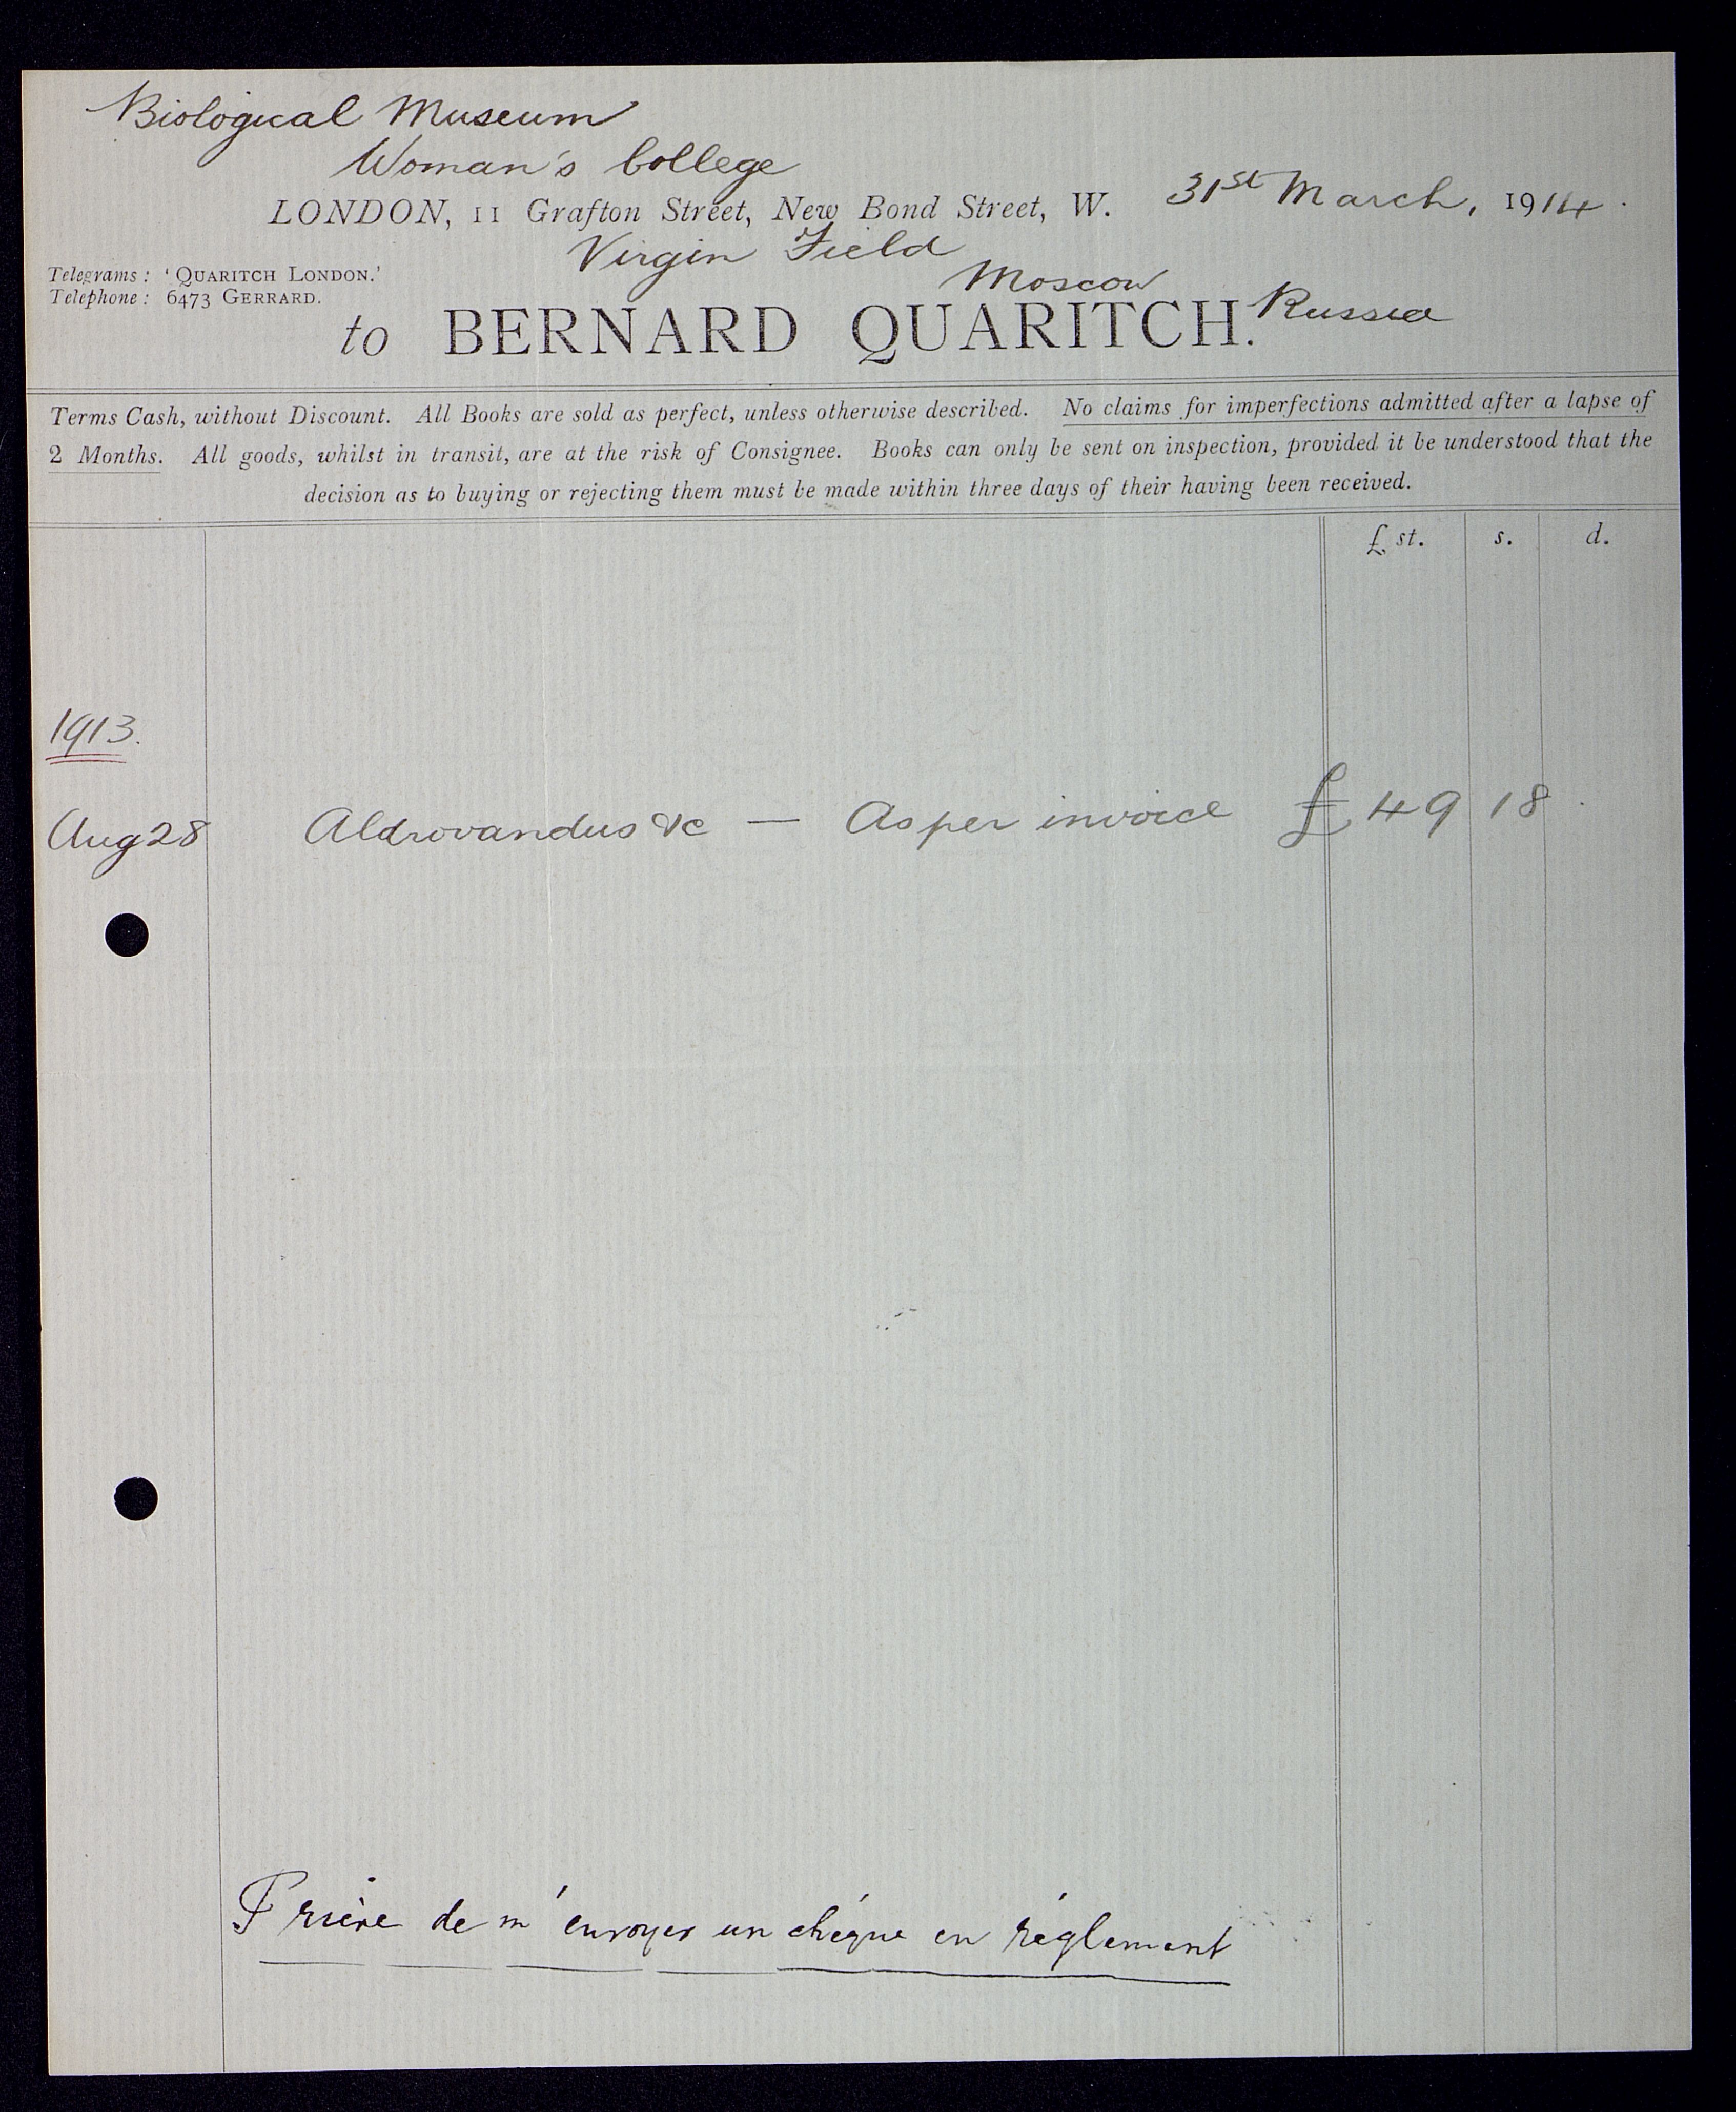 Biological Museum
Woman's College
LONDON, 11 Grafton Street, New Bond Street, W. 31st March, 1914.
Virgin Field
Moscow
Russia
Telegrams: 'QUARITCH LONDON.'
Telephone: 6473 GERRARD.
to BERNARD QUARITCH.
Terms Cash, without Discount. All Books are sold as perfect, unless otherwise described. No claims for imperfections admitted after a lapse of
2 Months. All goods, whilst in transit, are at the risk of Consignee. Books can only be sent on inspection, provided it be understood that the
decision as to buying or rejecting them must be made within three days of their having been received.
£ st. s. d.
1913.
Aug 28 Aldrovandus &c — As per invoice £ 49 18
Prière de m'envoyer un chéque en réglement